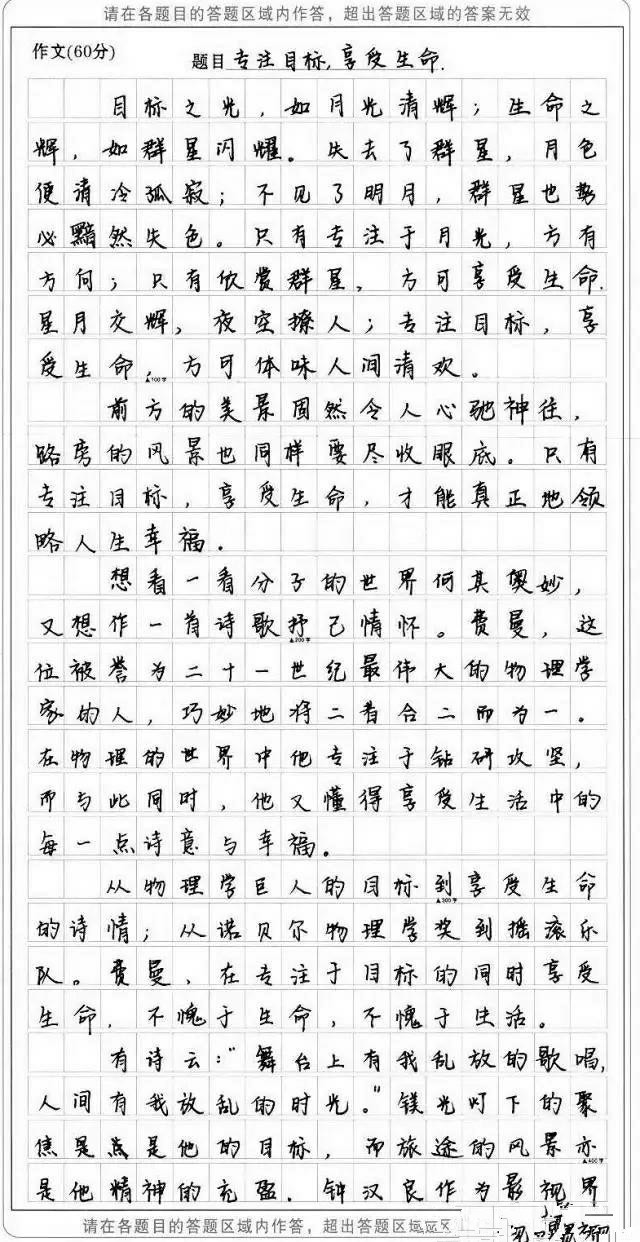 请在各题目的答题区域内作答，超出答题区域的答案无效
作文(60分)
题目 专注目标,享受生命.
目标之光，如月光清辉；生命之
辉，如群星闪耀。失去了群星，月色
便清冷孤寂；不见了明月，群星也势
必黯然失色。只有专注于月光，方有
方向；只有欣赏群星，方可享受生命.
星月交辉，夜空撩人；专注目标，享
受生命，方可体味人间清欢。
▲100字
前方的美景固然令人心驰神往，
路旁的风景也同样要尽收眼底。只有
专注目标，享受生命，才能真正地领
略人生幸福。
想看一看分子的世界何其奥妙，
又想作一首诗歌抒己情怀。费曼，这
▲200字
位被誉为二十一世纪最伟大的物理学
家的人，巧妙地将二者合二而为一。
在物理的世界中他专注于钻研攻坚，
而与此同时，他又懂得享受生活中的
每一点诗意与幸福。
从物理学巨人的目标到享受生命
▲300字
的诗情；从诺贝尔物理学奖到摇滚乐
队。费曼，在专注于目标的同时享受
生命，不愧于生命，不愧于生活。
有诗云："舞台上有我乱放的歌唱,
人间有我放乱的时光。"镁光灯下的聚
焦是点是他的目标，而旅途的风景亦
▲400字
是他精神的充盈．钟汉良作为影视界
请在各题目的答题区域内作答，超出答题区域